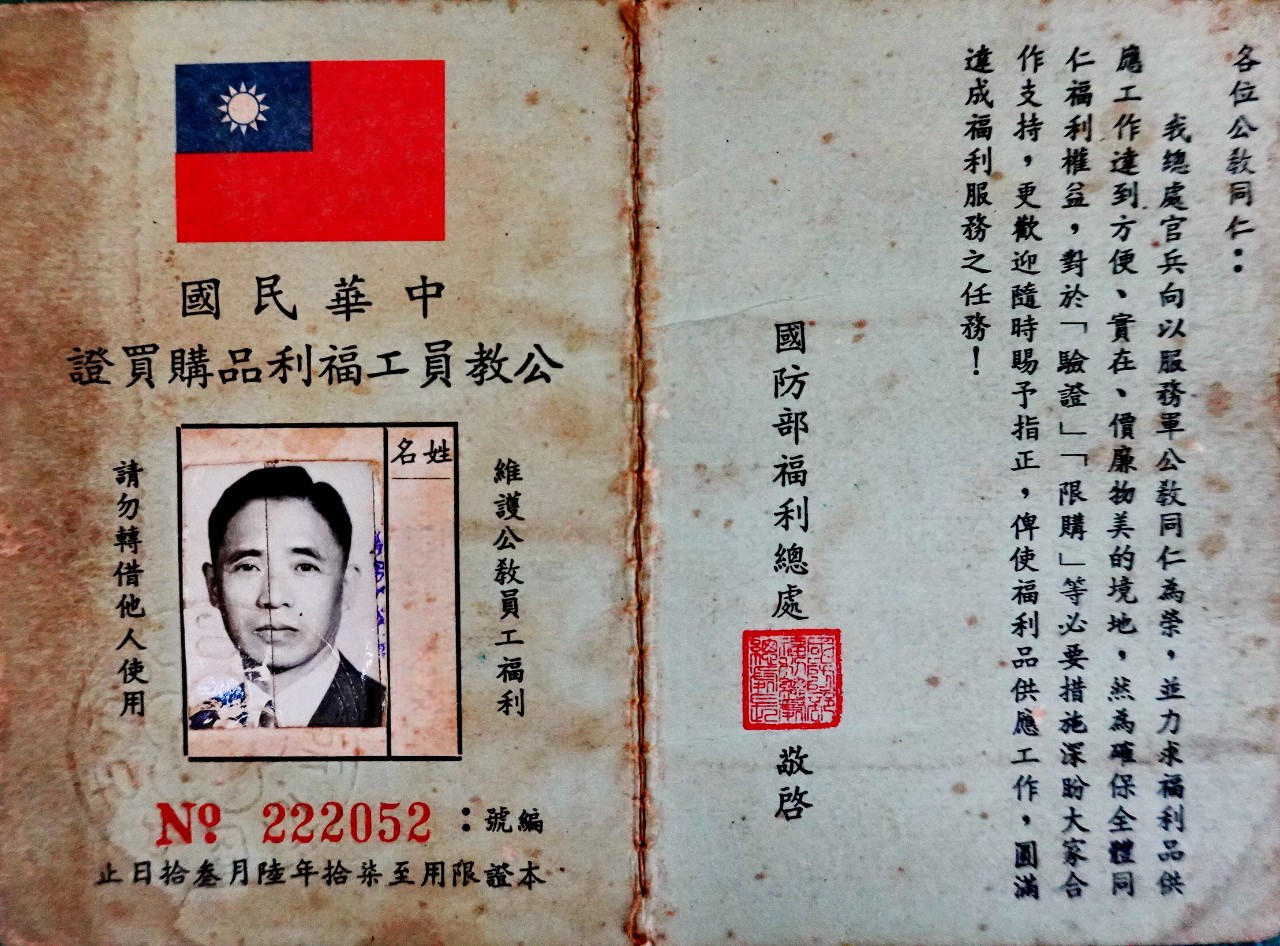 中華民國
公教員工福利品購買證
維護公教員工福利
姓名
請勿轉借他人使用
編號：№ 222052
本證限用至柒拾年陸月叁拾日止
各位公教同仁：
我總處官兵向以服務軍公教同仁為榮，並力求福利品供
應工作達到方便、實在、價廉物美的境地，然為確保全體同
仁福利權益，對於「驗證」「限購」等必要措施深盼大家合
作支持，更歡迎隨時賜予指正，俾使福利品供應工作，圓滿
達成福利服務之任務！
國防部福利總處 敬啓